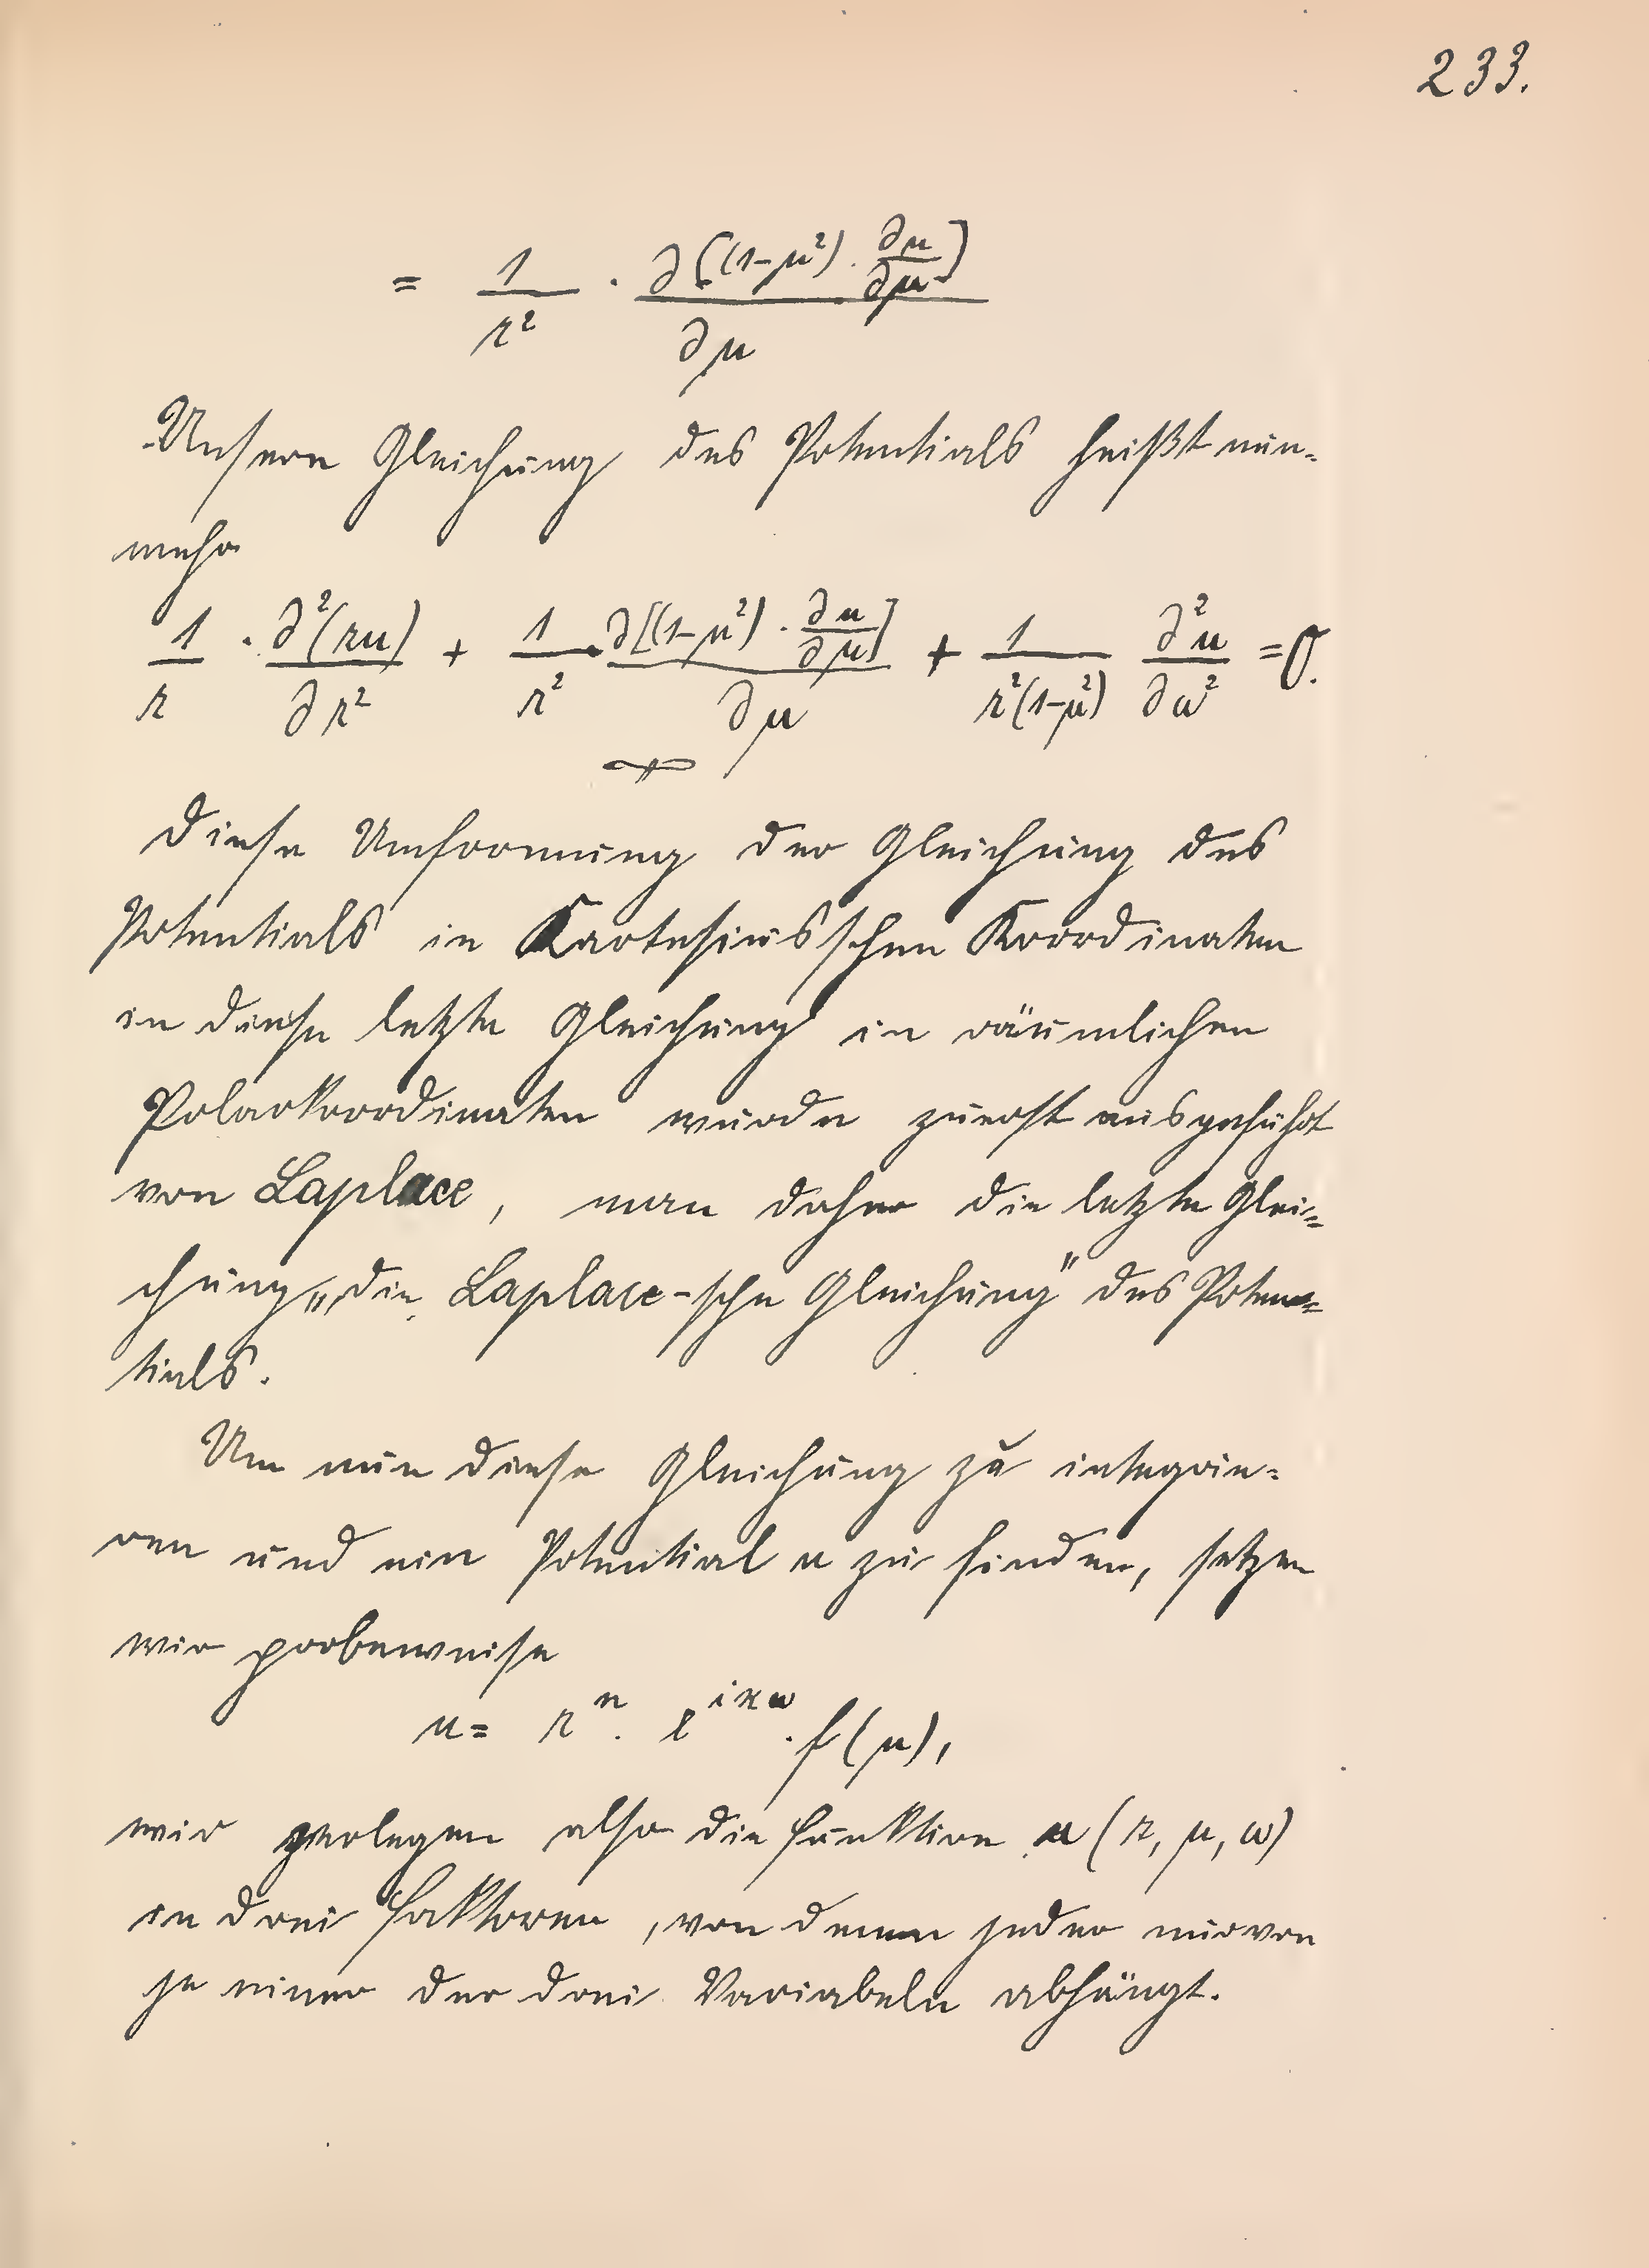 233.
= 1/r² · ∂[(1-μ²) · ∂u/∂μ]/∂μ
Unsere Gleichung des Potentials heißt nun-
mehr
1/r · ∂²(ru)/∂r² + 1/r² · ∂[(1-μ²) · ∂u/∂μ]/∂μ + 1/r²(1-μ²) ∂²u/∂ω² = 0.
Diese Umformung der Gleichung des
Potentials in Kartesius'schen Koordinaten
in diese letzte Gleichung in räumlichen
Polarkoordinaten wurde zuerst ausgeführt
von Laplace, man daher die letzte Glei-
chung „die Laplace-sche Gleichung" des Poten-
tials.
Um nun diese Gleichung zu integrie-
ren und ein Potential u zu finden, setzen
wir probeweise
u = rⁿ · e^{iϰω} · f(μ),
wir zerlegen also die Funktion u (r, μ, ω)
in drei Faktoren, von denen jeder nur von
je einer der drei Variabeln abhängt.